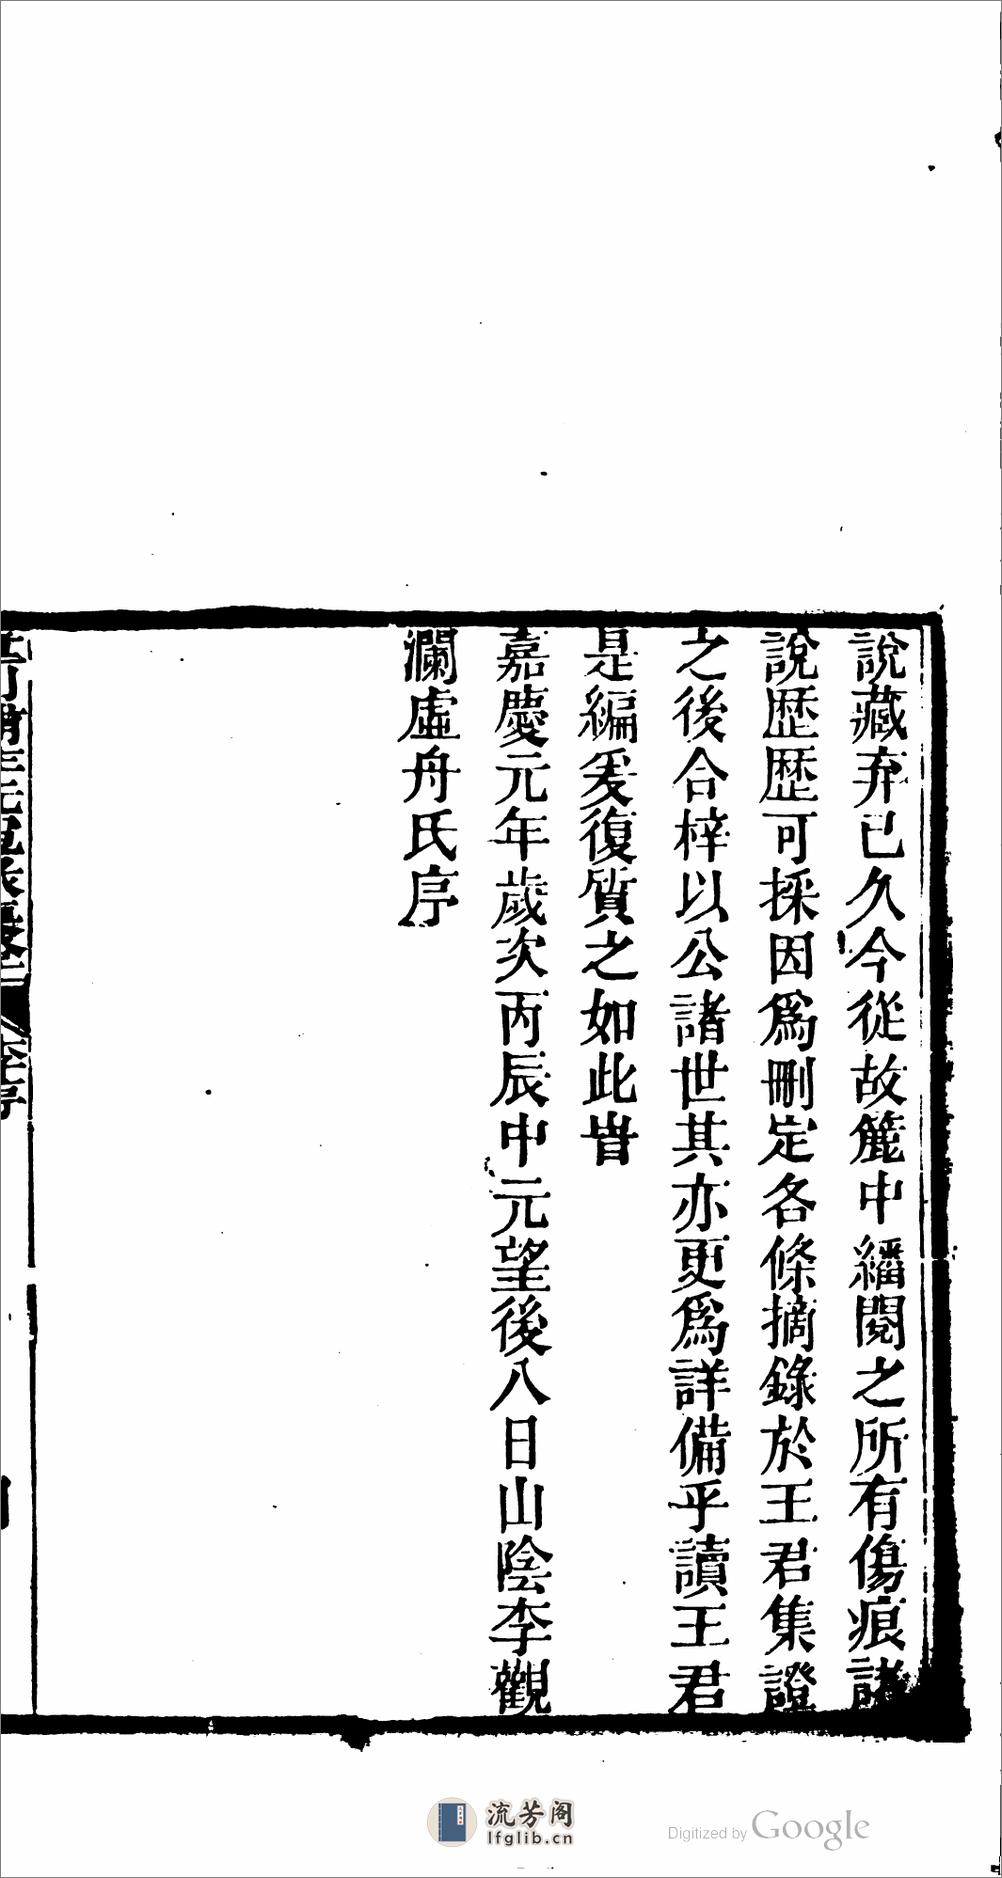 說藏弆已久今從故簏中繙閱之所有傷痕諸
說歴歴可採因爲刪定各條摘錄於王君集證
之後合梓以公諸世其亦更爲詳備乎讀王君
是編爰復質之如此旹
嘉慶元年歲次丙辰中元望後八日山陰李觀
瀾虛舟氏序
流芳阁
lfglib.cn
Digitized by Google